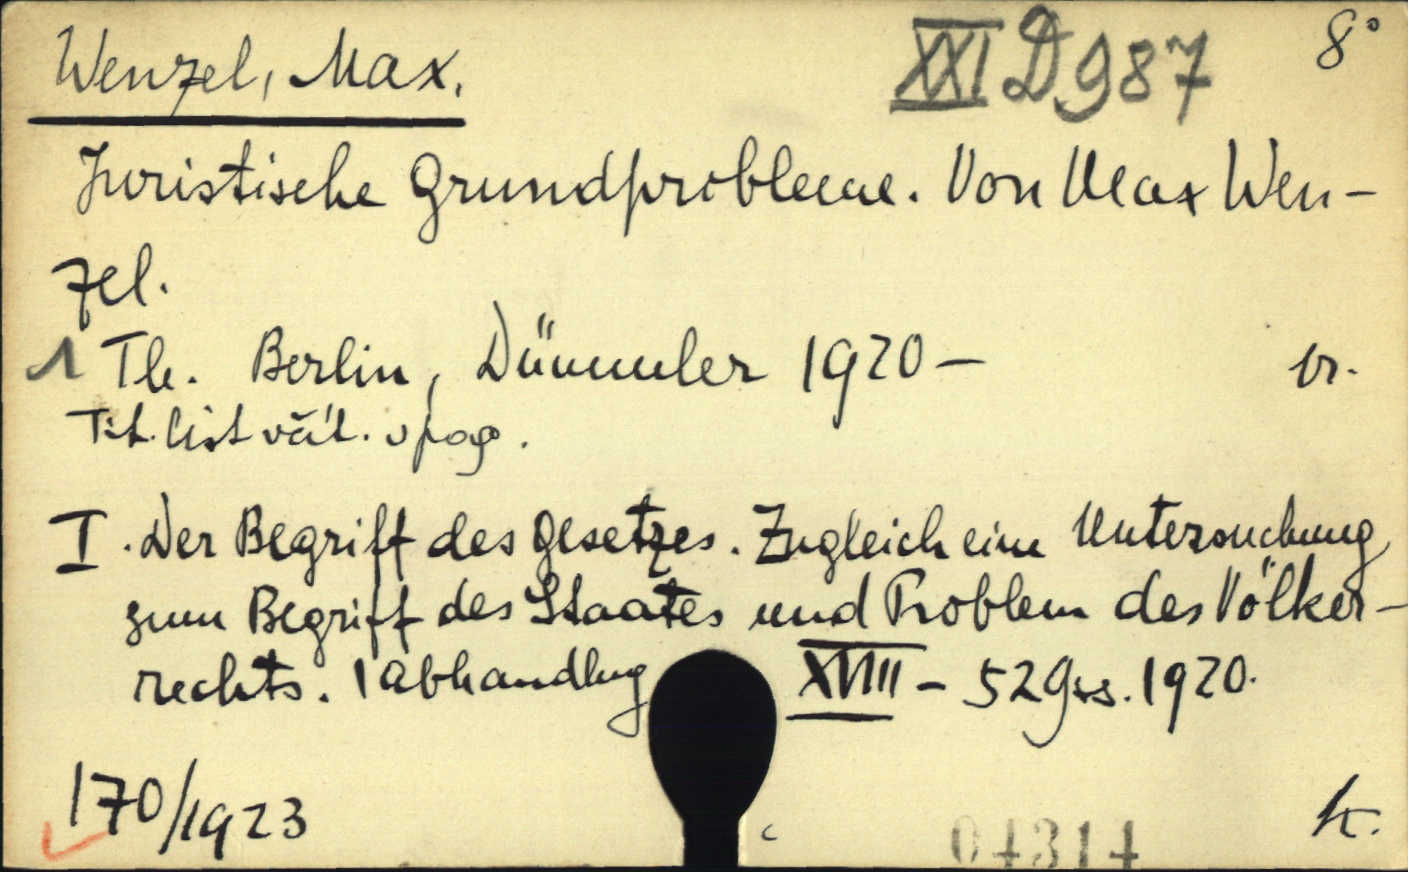 Wenzel, Max.
XXI D 987
8°
Juristische Grundprobleme. Von Max Wen-
zel.
1 Th. Berlin, Dümmler 1920 –
br.
Tit. list
I. Der Begriff des Gesetzes. Zugleich eine Untersuchung
zum Begriff des Staates und Problem des Völker-
rechts. 1 Abhandlug XVIII – 529 ss. 1920.
170/1923
k.
04314